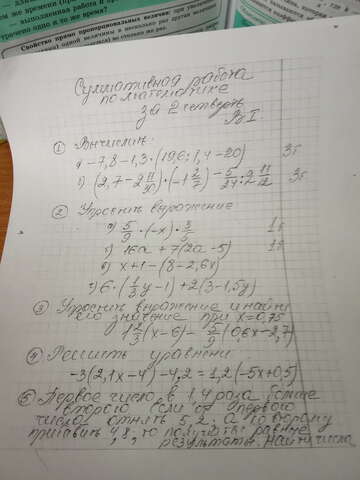 тем же времени
выполненная р
трачено одно и то же время?
Свойство прямо пропорциональных величин: при увеличении
одной величины в несколько раз другая величина
во столько же раз.
Суммативная работа
по математике
за 2 четверть
В I.
① Вычислить:
а) -7,8-1,3·(19,6:1,4-20) 3б
б) (2,7-2 11/30)·(-1 2/7)-5/24:2 11/12 3б
② Упростить выражение
а) 5/9·(-x)·3/5 1б
б) 16a+7(2a-5) 1б
в) x+1-(8-2,6x)
г) 6·(1/3y-1)+2(3-1,5y)
③ Упростить выражение и найти
его значение при x=0,75
1 2/3(x-6)-5/9(0,6x-2,7)
④ Решить уравнени
-3(2,1x-4)-4,2=1,2(-5x+0,5)
⑤ Первое число в 1,4 раза больше
второго, если от первого
числа отнять 5,2, а ко второму
прибавить 4,8, то получатся равные
результаты. Найти числа